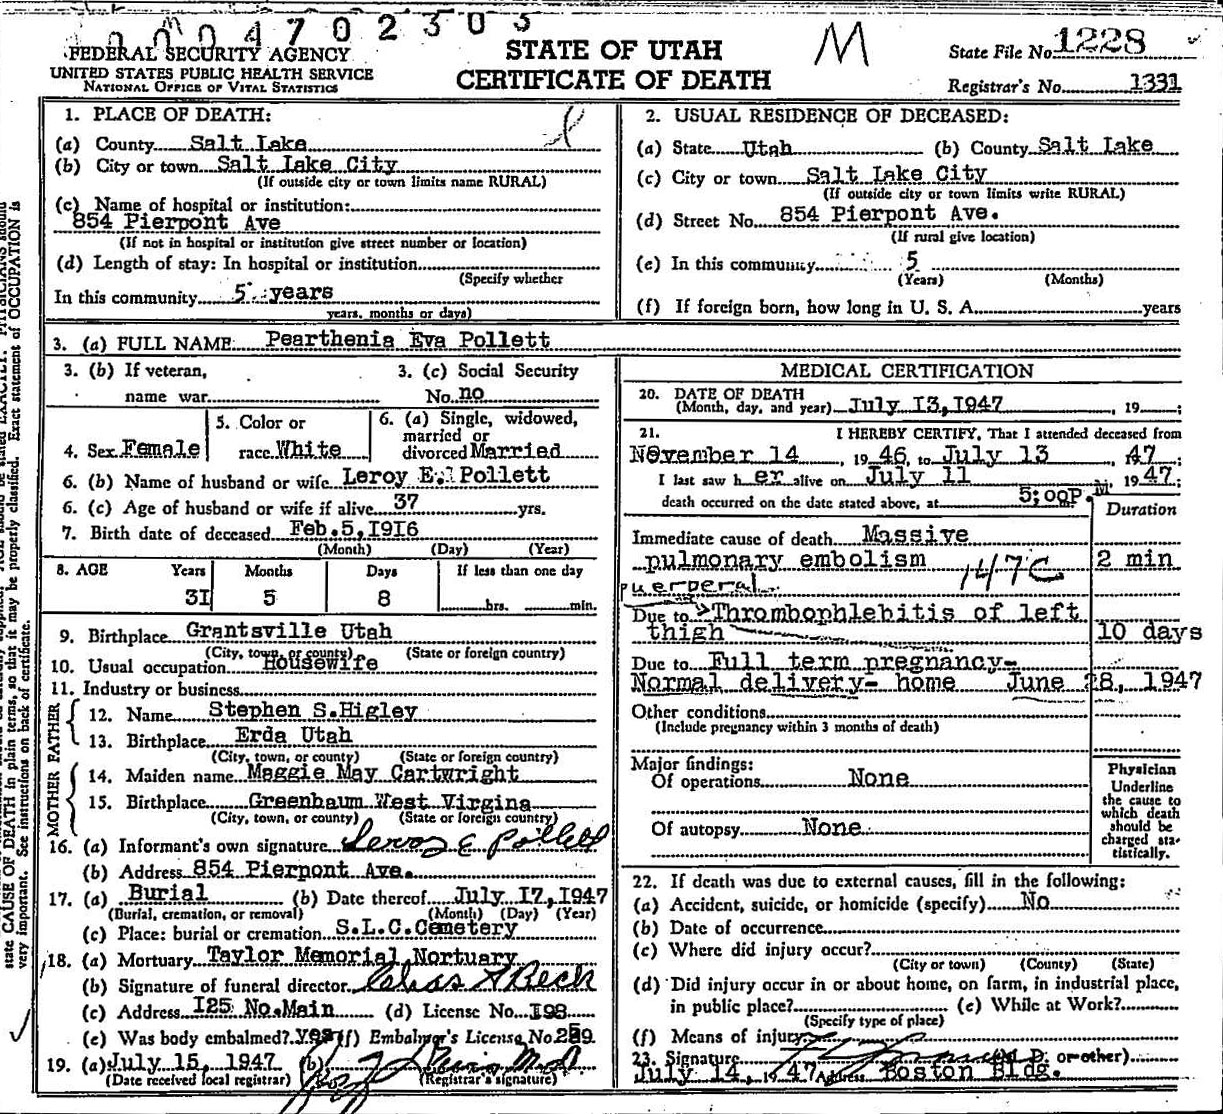 0004702303
FEDERAL SECURITY AGENCY
UNITED STATES PUBLIC HEALTH SERVICE
NATIONAL OFFICE OF VITAL STATISTICS
STATE OF UTAH
CERTIFICATE OF DEATH
M
State File No. 1228
Registrar's No. 1331
1. PLACE OF DEATH:
(a) County Salt Lake
(b) City or town Salt Lake City
(If outside city or town limits name RURAL)
(c) Name of hospital or institution:
854 Pierpont Ave
(If not in hospital or institution give street number or location)
(d) Length of stay: In hospital or institution
(Specify whether
In this community 5 years
years, months or days)
2. USUAL RESIDENCE OF DECEASED:
(a) State Utah (b) County Salt Lake
(c) City or town Salt Lake City
(If outside city or town limits write RURAL)
(d) Street No. 854 Pierpont Ave.
(If rural give location)
(e) In this community 5
(Years) (Months)
(f) If foreign born, how long in U. S. A. years
3. (a) FULL NAME Pearthenia Eva Pollett
3. (b) If veteran,
name war
3. (c) Social Security
No. no
4. Sex Female
5. Color or
race White
6. (a) Single, widowed,
married or
divorced Married
6. (b) Name of husband or wife Leroy E. Pollett
6. (c) Age of husband or wife if alive 37 yrs.
7. Birth date of deceased Feb.5,1916
(Month) (Day) (Year)
8. AGE Years Months Days If less than one day
31 5 8 hrs. min.
9. Birthplace Grantsville Utah
(City, town, or county) (State or foreign country)
10. Usual occupation Housewife
11. Industry or business
FATHER
12. Name Stephen S.Higley
13. Birthplace Erda Utah
(City, town, or county) (State or foreign country)
MOTHER
14. Maiden name Maggie May Cartwright
15. Birthplace Greenbaum West Virgina
(City, town, or county) (State or foreign country)
16. (a) Informant's own signature Leroy E Pollett
(b) Address 854 Pierpont Ave.
17. (a) Burial (b) Date thereof July 17,1947
(Burial, cremation, or removal) (Month) (Day) (Year)
(c) Place: burial or cremation S.L.C.Cemetery
18. (a) Mortuary Taylor Memorial Nortuary
(b) Signature of funeral director
(c) Address 125 No.Main (d) License No. 198
(e) Was body embalmed? yes (f) Embalmer's License No. 289
19. (a) July 15, 1947 (b)
(Date received local registrar) (Registrar's signature)
MEDICAL CERTIFICATION
20. DATE OF DEATH
(Month, day, and year) July 13,1947 , 19 ;
21. I HEREBY CERTIFY, That I attended deceased from
November 14 , 19 46, to July 13 , 47 ;
I last saw h er alive on July 11 , 19 47;
death occurred on the date stated above, at 5;00P. M.
Duration
Immediate cause of death Massive
pulmonary embolism 147C 2 min
puerperal
Due to Thrombophlebitis of left
thigh 10 days
Due to Full term pregnancy-
Normal delivery- home June 28, 1947
Other conditions
(Include pregnancy within 3 months of death)
Major findings:
Of operations None
Of autopsy None
Physician
Underline
the cause to
which death
should be
charged sta-
tistically.
22. If death was due to external causes, fill in the following:
(a) Accident, suicide, or homicide (specify) No
(b) Date of occurrence
(c) Where did injury occur?
(City or town) (County) (State)
(d) Did injury occur in or about home, on farm, in industrial place,
in public place? (e) While at Work?
(Specify type of place)
(f) Means of injury
23. Signature (M D. or other)
July 14, 19 47 Address Boston Bldg.
state CAUSE OF DEATH in plain terms, so that it may be properly classified. Exact statement of OCCUPATION is
very important. See instructions on back of certificate.